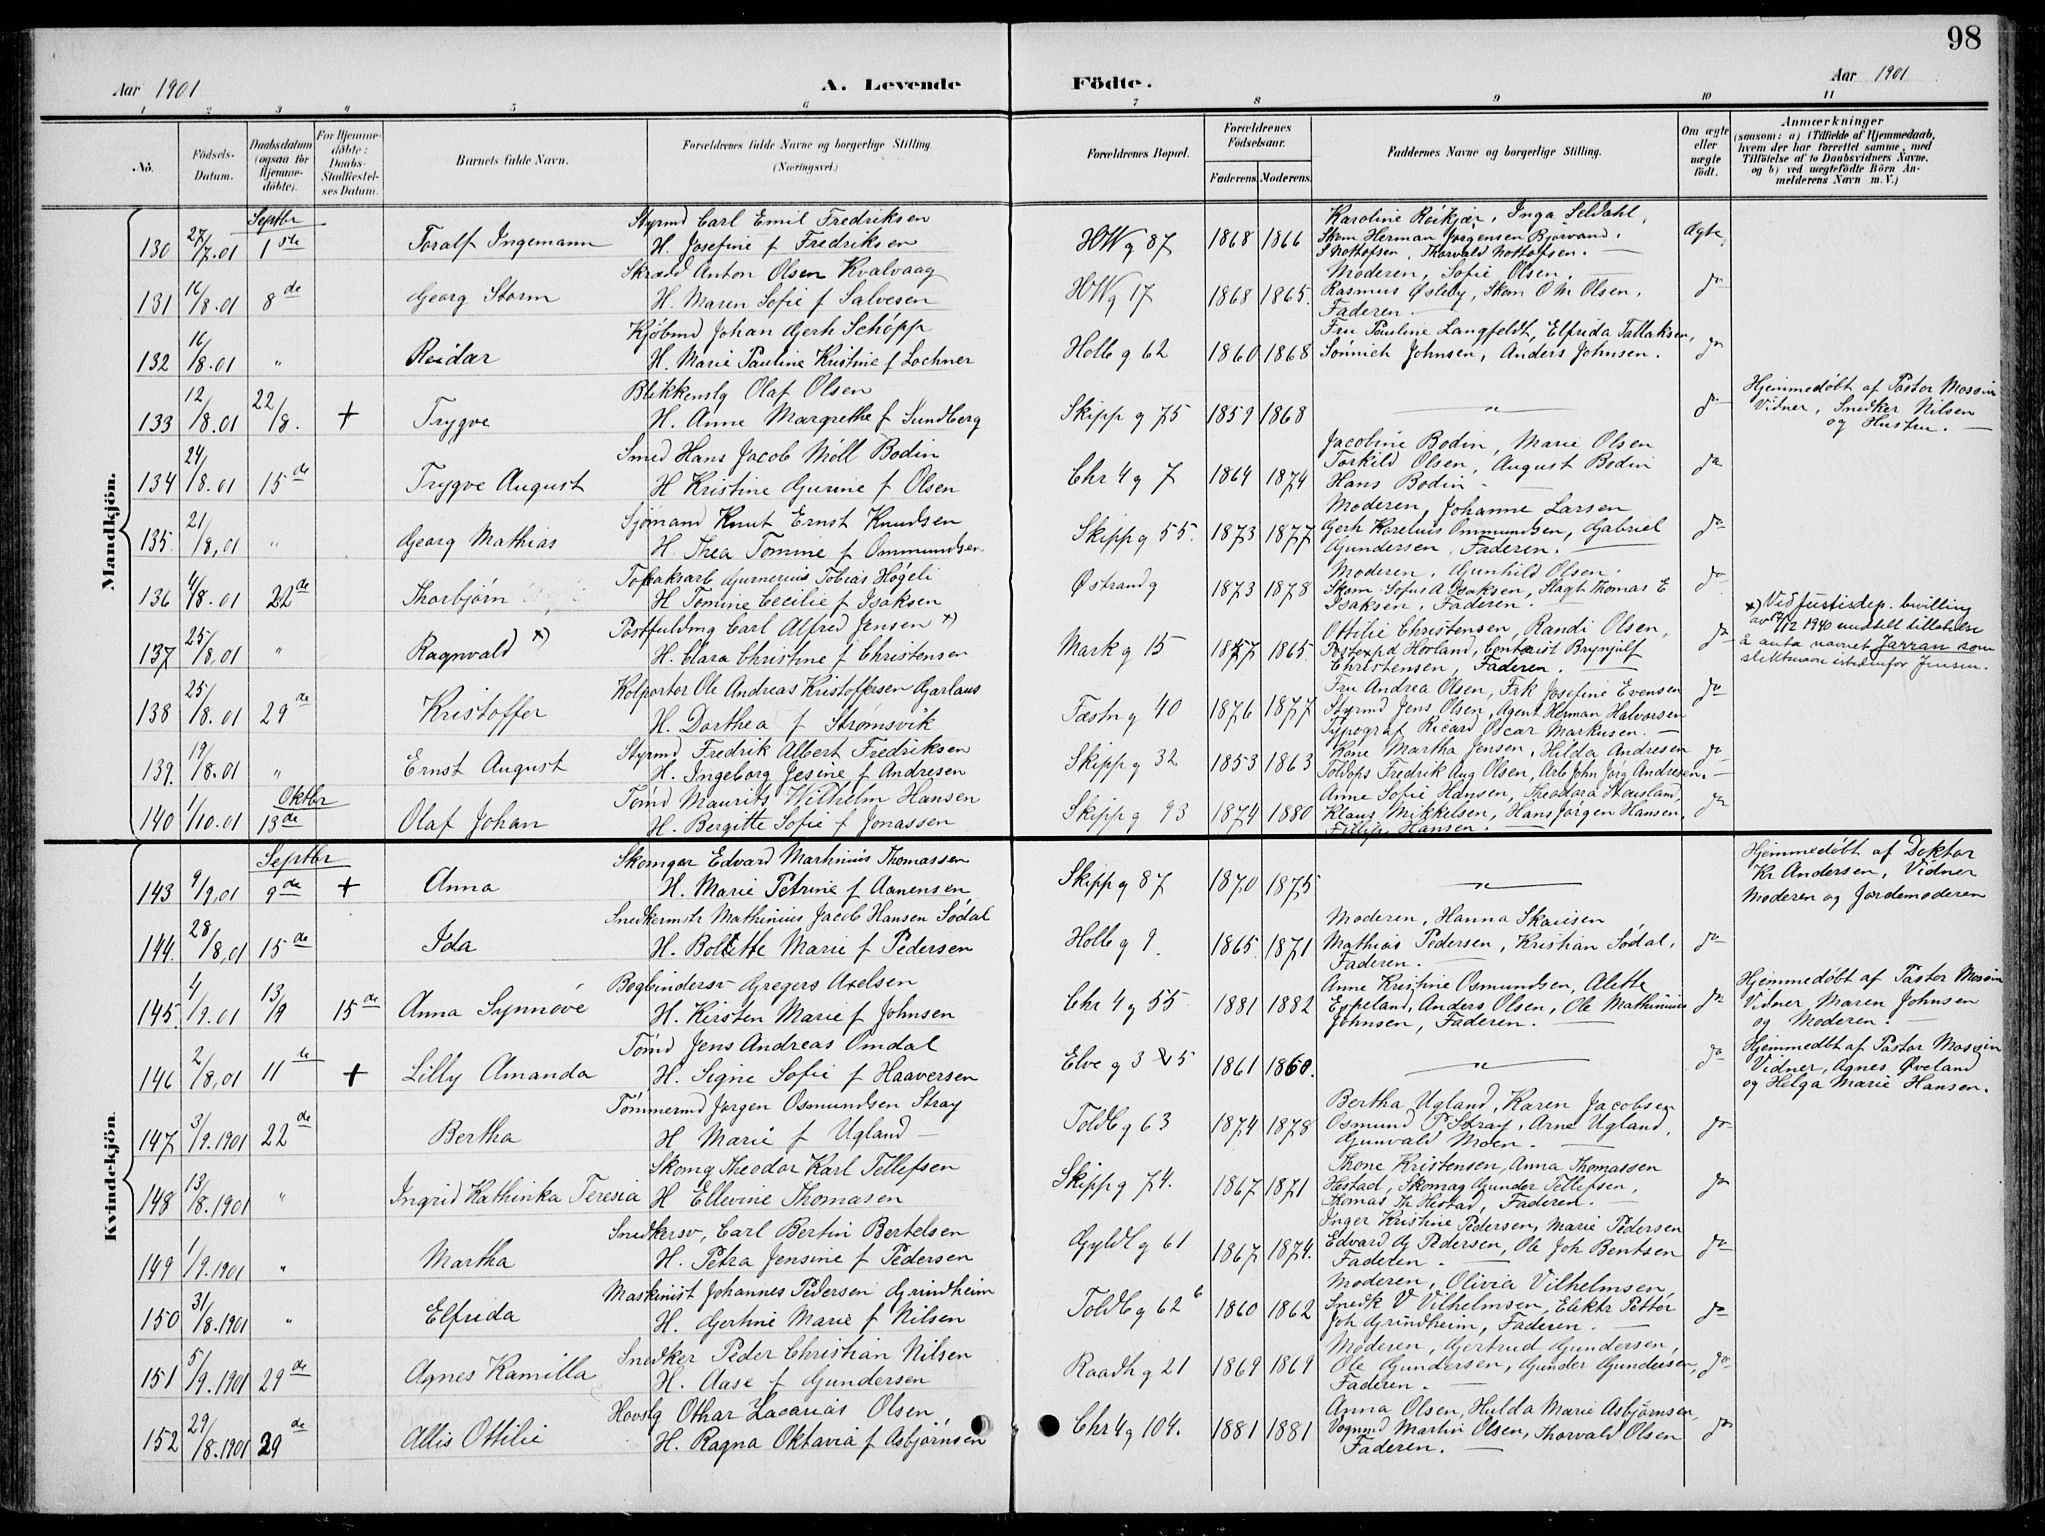 98
Aar 1901 A. Levende Födte. Aar 1901
1 2 3 4 5 6 7 8 9 10 11
No.
Födsels-
Datum.
Daabsdatum
(ogsaa for
Hjemme-
döbte).
For Hjemme-
döbte:
Daabs-
Stadfæstel-
ses Datum.
Barnets fulde Navn.
Forældrenes fulde Navne og borgerlige Stilling.
(Næringsvei.)
Forældrenes Bopæl.
Forældrenes
Födselsaar.
Faderens. Moderens.
Faddernes Navne og borgerlige Stilling.
Om ægte
eller
uægte
födt.
Anmærkninger
(saasom: a) i Tilfælde af Hjemmedaab,
hvem der har forrettet samme, med
Tilföielse af to Daabsvidners Navne,
og b) ved uægtefödte Börn An-
melderens Navn m. V.)
Mandkjön.
Septbr
130 27/7.01 1ste Toralf Ingemann
Styrmd Carl Emil Fredriksen
H. Josefine f Fredriksen
HWg 87 1868 1866
Karoline Röikjær, Inga Seldahl,
Skom Herman Jørgensen Bjorvand.
S Nottofsen, Thorvald Nottofsen. —
Ægte
131 16/8.01 8de Georg Storm
Skrædd Anton Olsen Kvalvaag
H. Maren Sofie f Salvesen
HWg 17 1868 1865.
Moderen, Sofie Olsen,
Rasmus Øsleby, Skom O M Olsen,
Faderen. —
do
132 16/8.01 " Reidar
Kjøbmd Johan Gerh Schöpp
H. Marie Pauline Kristine f Lochner
Holb g 62 1860 1868
Fru Pauline Langfeldt, Elfrida Tallaksen,
Sönnich Johnsen, Anders Johnsen.
do
133 12/8.01 22/8. + Trygve
Blikkenslg Olaf Olsen
H. Anne Margrethe f Sundberg
Skipp g 75 1859 1868 — " — do
Hjemmedøbt af Pastor
Vidner, Snedker Nilsen
og Hustru. —
134 24/8.01 15de Trygve August
Smed Hans Jacob Möll Bodin
H Kristine Gurine f Olsen
Chr 4 g 7 1864 1874
Jacobine Bodin, Marie Olsen
Torkild Olsen, August Bodin
Hans Bodin —
do
135. 21/8,01 " Georg Mathias
Sjömand Knut Ernst Knudsen
H. Thea Tomine f Ommundsen
Skipp g 55. 1873 1877
Moderen, Johanne Larsen
Gerh Korelius Ommundsen, Gabriel
Gundersen, Faderen. —
do
136 4/8.01 22de Thorbjørn
Tobaksarb Gunerius Tobias Høgeli
H Tomine Cecilie f Isaksen
Østrand g 1873 1878
Moderen, Gunhild Olsen.
Skom Sofus A Isaksen, Slagt Thomas E
Isaksen, Faderen. —
do
137 25/8,01 " Ragnvald x)
Postfuldmg Carl Alfred Jensen x)
H. Clara Christine f Christensen
Mark g 15 1877 1865.
Ottilie Christensen, Randi Olsen,
Postexpd Hovland, Contorist Brynjulf
Christensen, Faderen. —
do
x) Ved justisdep. bevilling
av 1940 meddelt tillatelse
å anta navnet Jarran som
slektsnavn istedenfor Jensen.
138 25/8.01 29de Kristoffer
Kolportør Ole Andreas Kristoffersen Gjerlaus
H. Dorthea f Strømsvik
Fæstn g 40 1876 1877
Fru Andrea Olsen, Frk Josefine Evensen
Styrmd Jens Olsen, Agent Herman Halvorsen
Typograf Ricard Oscar Markusen. —
do
139. 19/8.01 " Ernst August
Styrmd Fredrik Albert Fredriksen
H. Ingeborg Jesine f Andresen
Skipp g 32 1853 1863
Kone Martha Jensen, Hilda Andresen
Toldops Fredrik Aug Olsen, Arb John Jörg Andresen. —
do
Oktbr
140 1/10.01 13de Olaf Johan
Tömd Maurits Wilhelm Hansen
H. Bergitte Sofie f Jonassen
Skipp g 93 1874 1880
Anne Sofie Hansen, Theodora Stousland,
Klaus Mikkelsen, Hans Jørgen Hansen,
Fillip Hansen. —
do
Kvindekjön.
Septbr
143 9/9.01 9de + Anna
Skomger Edvard Martinius Thomassen
H. Marie Petrine f Aanensen
Skipp g 87 1870 1875 — " —
Hjemmedøbt af Doktor
Kr Andersen, Vidner
Moderen og Jordemoderen
144. 28/8,01 15de Ida
Snedkermstr Mathinius Jacob Hansen Södal
H. Bolette Marie f Pedersen
Holb g 9. 1865. 1871
Moderen, Hanna Skaisen
Mathias Pedersen, Kristian Sødal,
Faderen. —
do
145. 4/9.01 13/9 15de Anna Synnöve
Bogbindersv Gregers Axelsen
H. Kirsten Marie f Johnsen
Chr 4 g 55 1881 1882
Anne Kristine Osmundsen, Alette
Espeland, Anders Olsen, Ole Mathinius
Johnsen, Faderen. —
do
Hjemmedøbt af Pastor
Vidner, Maren Johnsen
og Moderen. —
146 2/8,01 11te + Lilly Amanda
Tömd Jens Andreas Omdal
H. Signe Sofie f Haaversen
Elve g 3 & 5 1861 1860. — " — do
Hjemmedbt af Pastor
Vidner, Agnes Øveland
og Helga Marie Hansen.
147 3/9.1901 22de Bertha
Tömmermd Jørgen Osmundsen Stray
H Marie f Ugland —
Toldb g 63 1874 1878
Bertha Ugland, Karen Jacobsen
Osmund P Stray, Arne Ugland,
Gunvald Moen. —
do
148 13/8.1901 " Ingrid Kathinka Teresia
Skomg Theodor Karl Tellefsen
H Ellevine Thomasen
Skipp g 74. 1867 1871
Thone Kristensen, Anna Thomassen
Hestad, Skomag Gunder Tellefsen,
Thomas Th Hestad, Faderen. —
do
149 1/9.1901 " Martha
Snedkersv, Carl Bertin Bertelsen
H. Petra Jensine f Pedersen
Gyldl g 61 1867 1874.
Inger Kristine Pedersen, Marie Pedersen
Edvard Ag Pedersen, Ole Joh Bentsen
Faderen. —
do
150 31/8.1901 " Elfrida
Maskinist Johannes Pedersen Grindheim
H. Gertine Marie f Nilsen
Toldb g 62 b 1860 1862
Moderen, Olivia Vilhelmsen
Snedk V Vilhelmsen, Elektr Pettér
Joh Grindheim, Faderen. —
do
151 5/9.1901 29de Agnes Kamilla
Snedker Peder Christian Nilsen
H. Aase f Gundersen
Raadh g 21 1869 1869
Moderen, Gjertrud Gundersen,
Ole Gundersen, Gunder Gundersen,
Faderen. —
do
152 29/8.1901 29de Allis Ottilie
Hovslg Othar Zacarias Olsen
H. Ragna Oktavia f Asbjørnsen
Chr 4 g 104. 1881 1881
Anna Olsen, Hulda Marie Asbjørnsen,
Vognmd Martin Olsen, Thorvald Olsen
Faderen. —
do